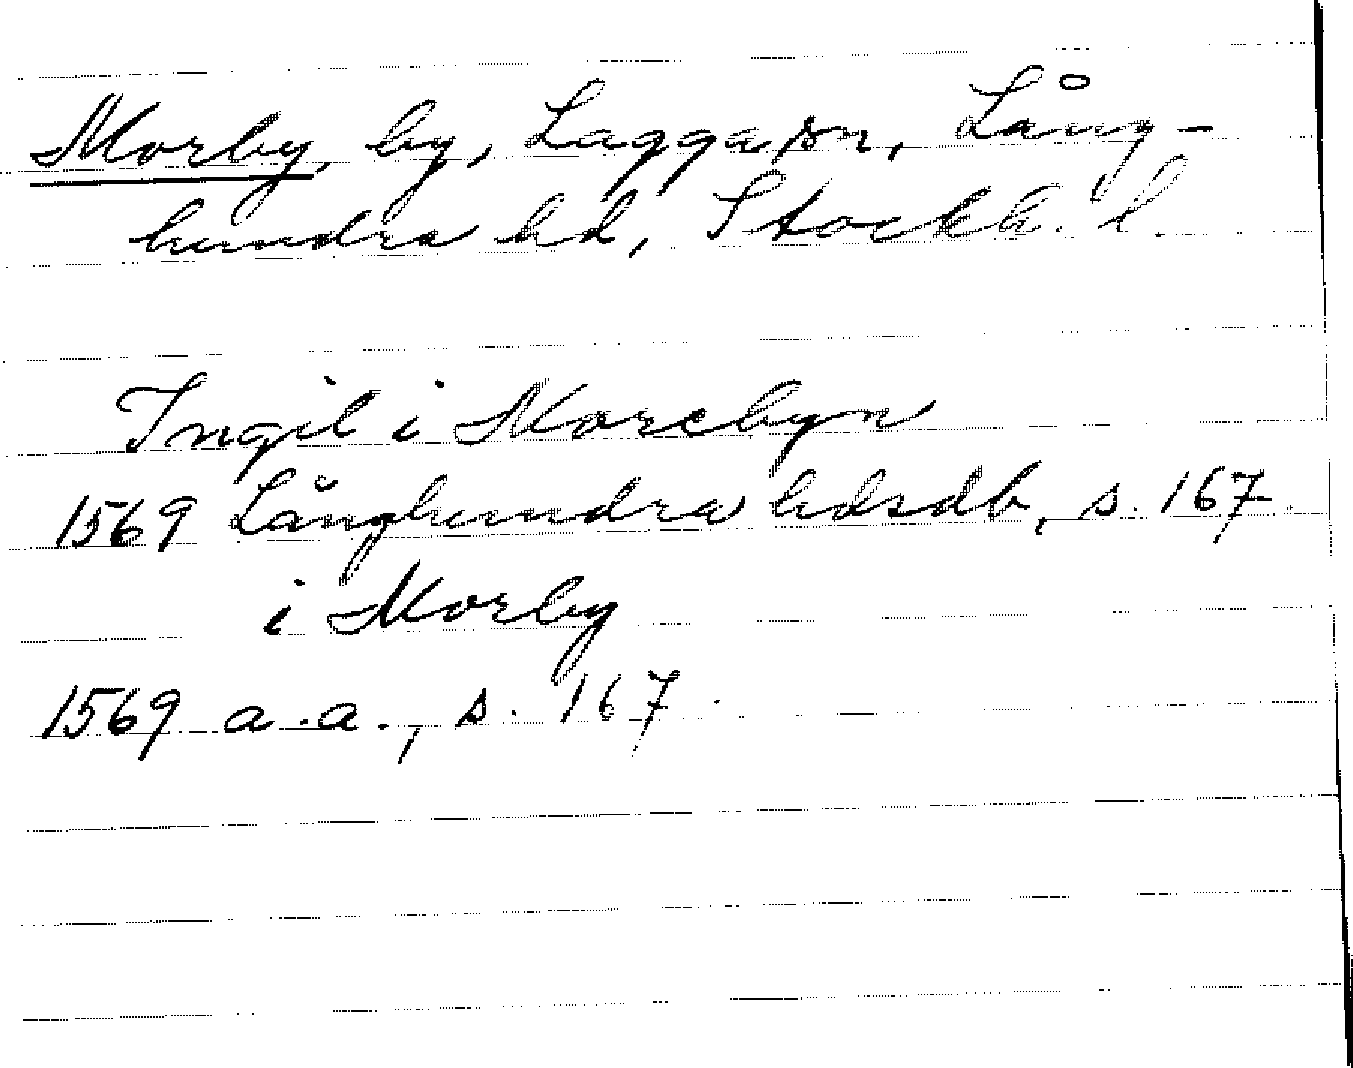 Morby, by, Lagga sn, Lång-
hundra hd, Stockh. l.
Ingil i Morebyn
1569 Långhundra hdsdb, s. 167.
i Morby
1569 a.a., s. 167.